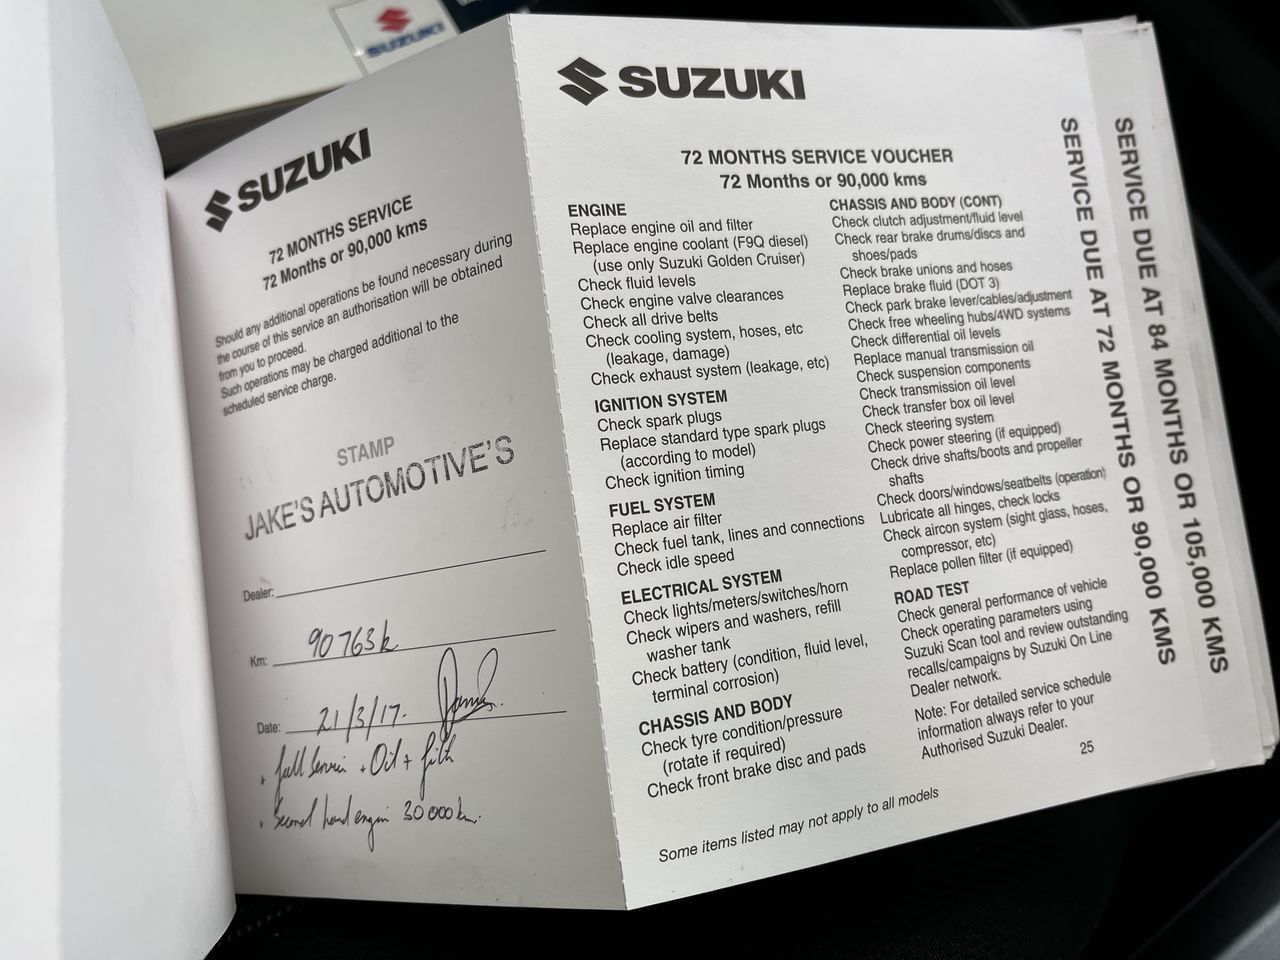 SUZUKI
SUZUKI
72 MONTHS SERVICE
72 Months or 90,000 kms
Should any additional operations be found necessary during
the course of this service an authorisation will be obtained
from you to proceed.
Such operations may be charged additional to the
scheduled service charge.
STAMP
JAKE'S AUTOMOTIVE'S
Dealer:
Km: 90763k
Date: 21/3/17.
. full Service . Oil + filt
. Second hand engin 30000km.
SUZUKI
72 MONTHS SERVICE VOUCHER
72 Months or 90,000 kms
ENGINE
Replace engine oil and filter
Replace engine coolant (F9Q diesel)
(use only Suzuki Golden Cruiser)
Check fluid levels
Check engine valve clearances
Check all drive belts
Check cooling system, hoses, etc
(leakage, damage)
Check exhaust system (leakage, etc)
IGNITION SYSTEM
Check spark plugs
Replace standard type spark plugs
(according to model)
Check ignition timing
FUEL SYSTEM
Replace air filter
Check fuel tank, lines and connections
Check idle speed
ELECTRICAL SYSTEM
Check lights/meters/switches/horn
Check wipers and washers, refill
washer tank
Check battery (condition, fluid level,
terminal corrosion)
CHASSIS AND BODY
Check tyre condition/pressure
(rotate if required)
Check front brake disc and pads
CHASSIS AND BODY (CONT)
Check clutch adjustment/fluid level
Check rear brake drums/discs and
shoes/pads
Check brake unions and hoses
Replace brake fluid (DOT 3)
Check park brake lever/cables/adjustment
Check free wheeling hubs/4WD systems
Check differential oil levels
Replace manual transmission oil
Check suspension components
Check transmission oil level
Check transfer box oil level
Check steering system
Check power steering (if equipped)
Check drive shafts/boots and propeller
shafts
Check doors/windows/seatbelts (operation)
Lubricate all hinges, check locks
Check aircon system (sight glass, hoses,
compressor, etc)
Replace pollen filter (if equipped)
ROAD TEST
Check general performance of vehicle
Check operating parameters using
Suzuki Scan tool and review outstanding
recalls/campaigns by Suzuki On Line
Dealer network.
Note: For detailed service schedule
information always refer to your
Authorised Suzuki Dealer.
25
Some items listed may not apply to all models
SERVICE DUE AT 72 MONTHS OR 90,000 KMS
SERVICE DUE AT 84 MONTHS OR 105,000 KMS